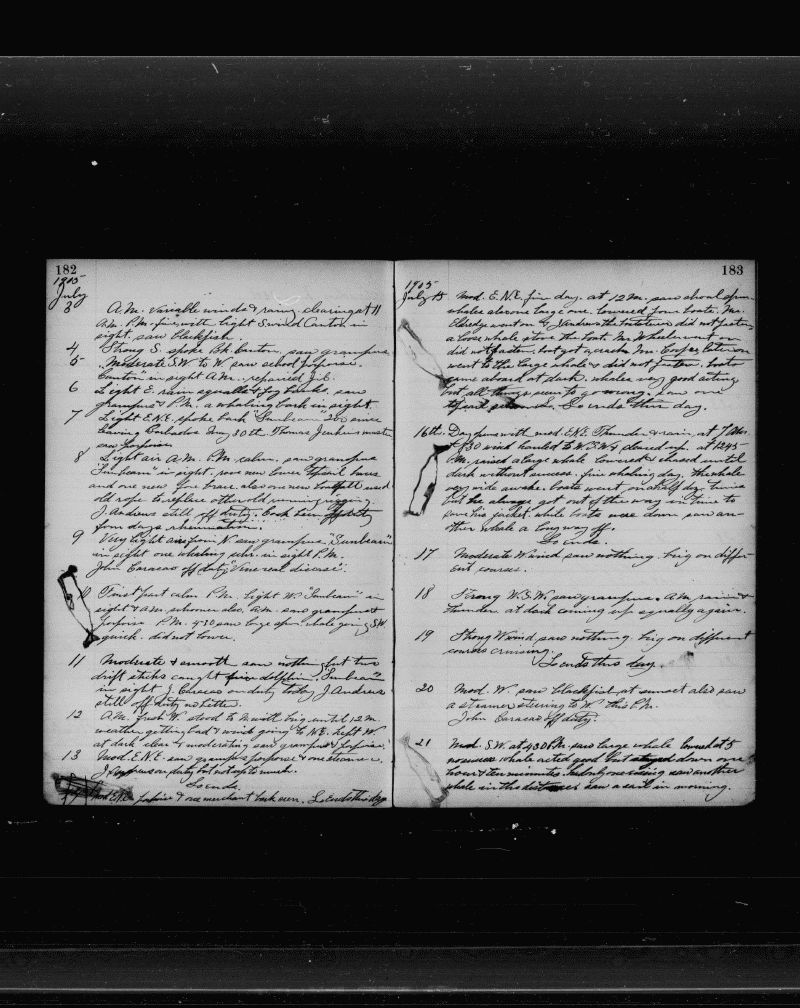 182
1905
July
3 A.M. variable winds & rainy clearing at 11
A.M. P.M. fine, with light S wind Canton in
sight. saw blackfish.
4 Strong S. spoke Bk. Canton, saw grampus
5 Moderate S.W. to W. saw school porpoise.
"Canton" in sight A.M. repaired jib.
6 Light E. rain squalls & fog banks. saw
grampus & P.M. a whaling bark in sight.
7 Light E.N.E. spoke bark "Sunbeam" 260 since
leaving Barbados May 30th Thomas Jenkins master
saw porpoise
8 Light air A.M. P.M. calm. saw grampus
"Sunbeam" in sight. rove new lower topsail
and one new brace also new used
old rope to replace other old running rigging.
J. Andrews still off duty. Cook been off duty
four days rheumatism.
9 Very light airs from N. saw grampus, "Sunbeam"
in sight one whaling schr. in sight P.M.
John Caracao off duty "Venereal disease".
10 First part calm P.M. light W. "Sunbeam" in
sight & A.M. schooner also, A.M. saw grampus &
porpoise P.M. 4-30 saw large sperm whale going S.W.
quick. did not lower.
11 Moderate & smooth saw nothing but two
drift sticks caught dolphin. "Sunbeam"
in sight J. Caracao on duty today J. Andrews
still off duty no better.
12 A.M. fresh W. stood to N with brig until 12 M.
weather getting bad & wind going to N.E. kept W
at dark clear & moderating saw grampus & porpoise.
13 Mod. E.N.E. saw grampus porpoise & one steamer.
J. Andrews on duty but not up to much.
So ends
Mod. E.N.E. porpoise & one merchant bark seen. So Ends this day
183
1905
July 15 Mod. E.N.E. fine day. at 12 M. saw shoal sperm
whales also one large one. lowered four boats. Mr.
Eldredge went on & J. Andrews the did not fasten
a loose whale stove the boat. Mr. Wheeler went on
did not fasten, but got a crack Mr. Cofer later on
went to the large whale & did not fasten. boats
came aboard at dark. whales very good acting
but all things seem to go wrong. saw one
So ends this day.
16th. Day came with mod. E.N.E. Thunder & rain, at 7 A.M.
& 8.30 wind hauled to W.S.W. & cleared up. at 12.45
P.M. raised a large whale lowered & chased until
dark without success. fine whaling day. the whale
very wide awake. boats went on half dz. times
but he always got out of the way in time to
save his jacket. while boats were down saw an-
other whale a long way off.
So ends.
17 Moderate W wind saw nothing. brig on differ-
ent courses.
18 Strong W.S.W. saw grampus. A.M. rain &
thunder. at dark coming up squally again.
19 Strong W wind, saw nothing. brig on different
courses cruising.
So ends this day.
20 Mod. W. saw blackfish, at sunset also saw
a steamer steering to W. this P.M.
John Caracao off duty.
21 Mod. S.W. at 4.30 P.M. saw large whale lowered at 5
no success whale acted good but stayed down one
hour & ten minutes had only one rising saw another
whale in the distance saw a sail in morning.